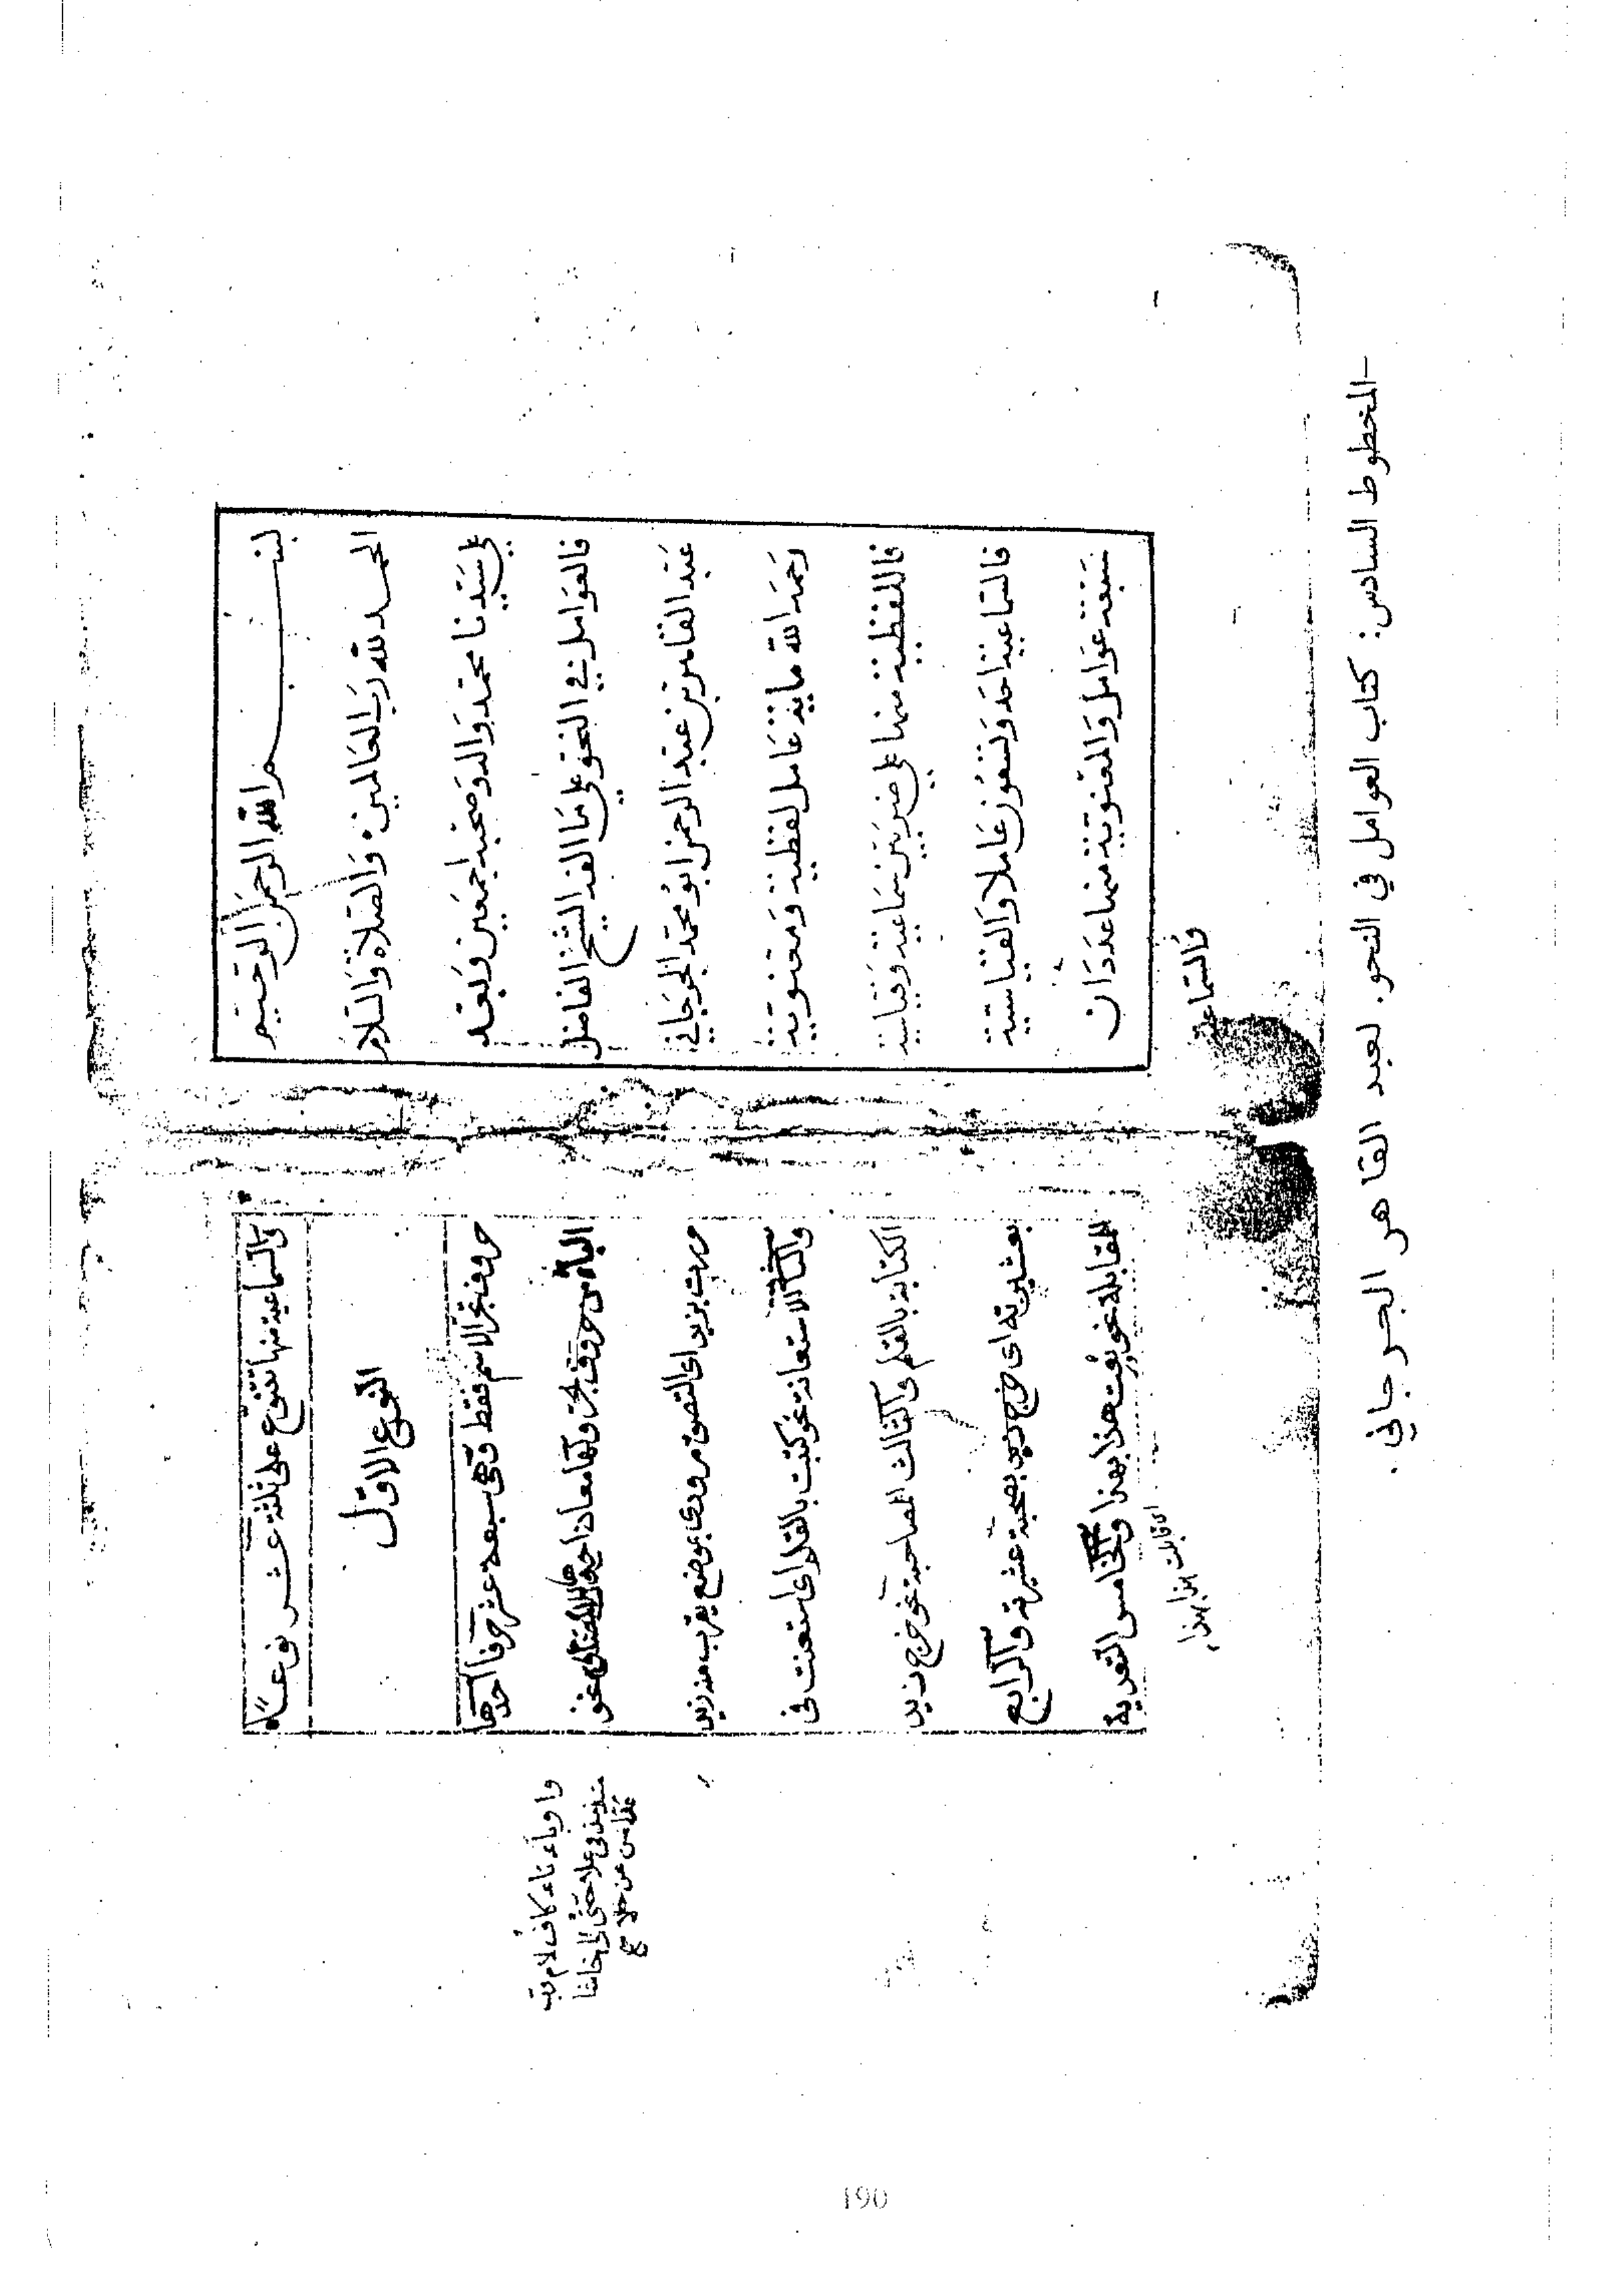 بسم الله الرحمن الرحيم
الحمد لله رب العالمين والصلاة والسلام
على سيدنا محمد واله وصحبه اجمعين وبعد
فالعوامل في النحو على ما الفه الشيخ الفاضل
عبد القاهر بن عبد الرحمن ابو محمد الجرجاني
رحمه الله ماية عامل لفظية ومعنوية
فاللفظية منها على ضربين سماعية وقياسية
فالسماعية احد وتسعون عاملا والقياسية
سبعة عوامل والمعنوية منها عددان
فالسماعية
والسماعية منها تتنوع على ثلثة عشر نوعا
النوع الاول
حروف تجر الاسم فقط وهى سبعة عشر حرفا احدها
الباء من حروف الجر ولها معان احدها نحو
مررت بزيد اى التصق مرورى بموضع يقرب منه زيد
والثانى الاستعانة نحو كتبت بالقلم اى استعنت فى
الكتابة بالقلم والثالث المصاحبة نحو خرج زيد
بعشيرته اى خرج زيد بصحبة عشيرته والرابع
المقابلة نحو بعت هذا بهذا والخامس التعدية
اى قابلت هذا بهذا
واو باء تاء كاف لام رب
منذ مذ فى على حتى الى حاشا
من عن خلا
–المخطوط السادس: كتاب العوامل في النحو. لعبد القاهر الجرجاني.
190